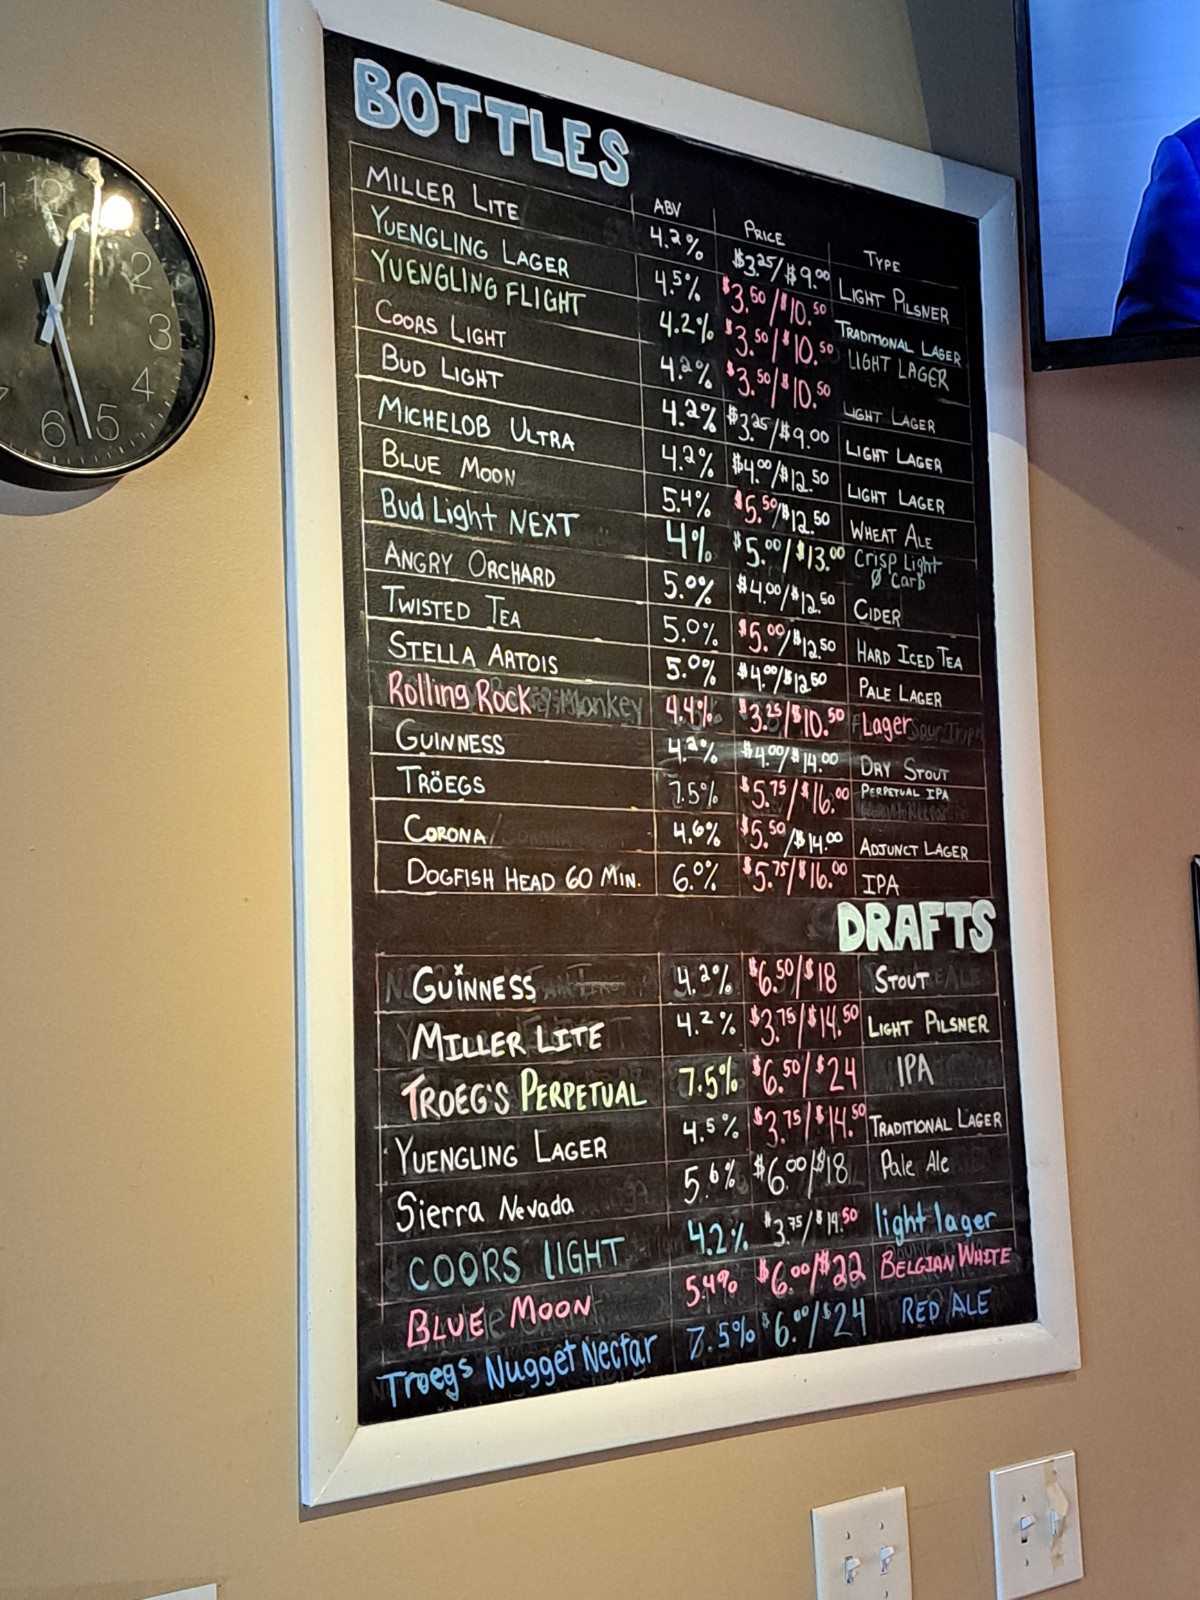 BOTTLES
ABV PRICE TYPE
MILLER LITE 4.2% $3.25/$9.00 LIGHT PILSNER
YUENGLING LAGER 4.5% $3.50/$10.50 TRADITIONAL LAGER
YUENGLING FLIGHT 4.2% $3.50/$10.50 LIGHT LAGER
COORS LIGHT 4.2% $3.50/$10.50 LIGHT LAGER
BUD LIGHT 4.2% $3.25/$9.00 LIGHT LAGER
MICHELOB ULTRA 4.2% $4.00/$12.50 LIGHT LAGER
BLUE MOON 5.4% $5.50/$12.50 WHEAT ALE
Bud Light NEXT 4% $5.00/$13.00 Crisp Light
Ø Carb
ANGRY ORCHARD 5.0% $4.00/$12.50 CIDER
TWISTED TEA 5.0% $5.00/$12.50 HARD ICED TEA
STELLA ARTOIS 5.0% $4.00/$12.50 PALE LAGER
Rolling Rock Monkey 4.4% $3.25/$10.50 Lager
GUINNESS 4.2% $4.00/$14.00 DRY STOUT
TRÖEGS 7.5% $5.75/$16.00 PERPETUAL IPA
CORONA 4.6% $5.50/$14.00 ADJUNCT LAGER
DOGFISH HEAD 60 MIN. 6.0% $5.75/$16.00 IPA
DRAFTS
GUINNESS 4.2% $6.50/$18 STOUT
MILLER LITE 4.2% $3.75/$14.50 LIGHT PILSNER
TROEG'S PERPETUAL 7.5% $6.50/$24 IPA
YUENGLING LAGER 4.5% $3.75/$14.50 TRADITIONAL LAGER
Sierra Nevada 5.6% $6.00/$18 Pale Ale
COORS lIGHT 4.2% $3.75/$14.50 light lager
BLUE MOON 5.4% $6.00/$22 BELGIAN WHITE
Troegs Nugget Nectar 7.5% $6.00/$24 RED ALE
1 12 2 3 4 5 6 7